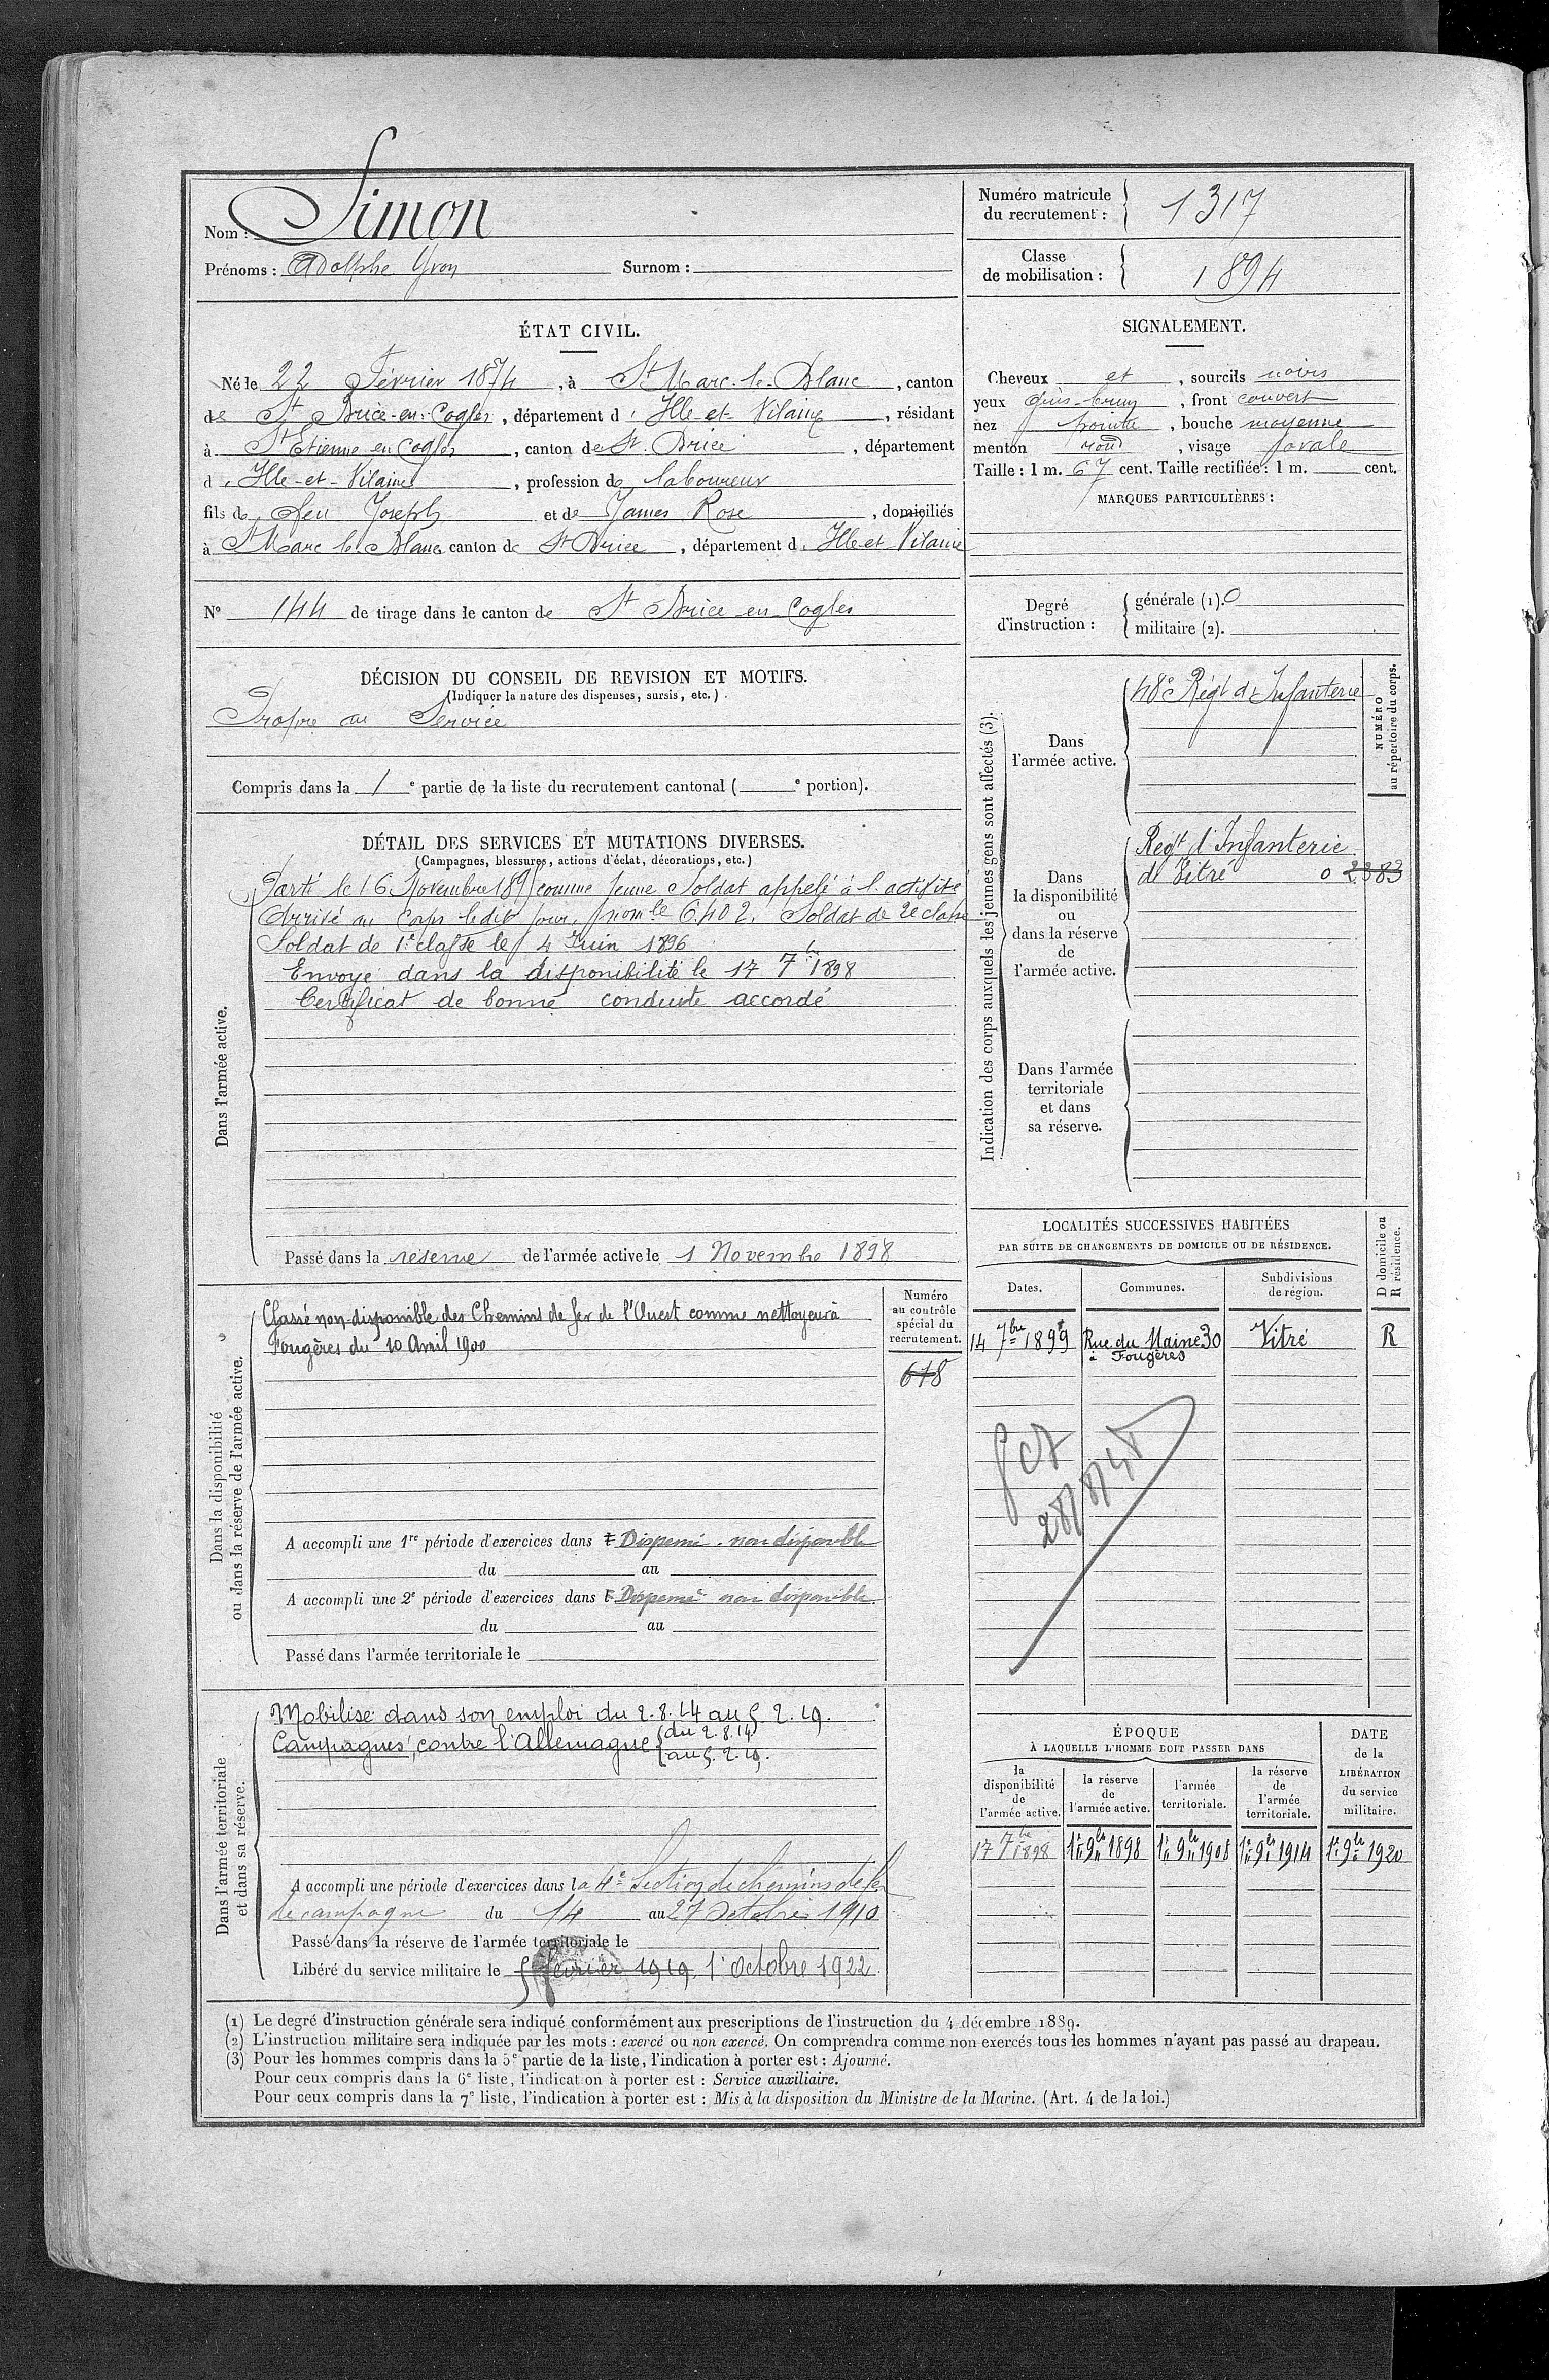 Nom : Simon
Prénoms : Adolphe Yvon Surnom :
Numéro matricule du recrutement : 1317
Classe de mobilisation : 1894
ÉTAT CIVIL.
Né le 22 Février 1874, à St Marc-le-Blanc, canton
de St Brice-en-Cogles, département d'Ille-et-Vilaine, résidant
à St Etienne en Cogles, canton de St Brice, département
d'Ille-et-Vilaine, profession de laboureur
fils de feu Joseph et de James Rose, domiciliés
à St Marc le Blanc canton de St Brice, département d'Ille et Vilaine
SIGNALEMENT.
Cheveux et, sourcils noirs
yeux gris-brun, front couvert
nez pointu, bouche moyenne
menton rond, visage ovale
Taille : 1 m. 67 cent. Taille rectifiée : 1 m. cent.
MARQUES PARTICULIÈRES :
N° 144 de tirage dans le canton de St Brice-en-Cogles
Degré d'instruction : générale (1). 0
militaire (2).
DÉCISION DU CONSEIL DE REVISION ET MOTIFS.
(Indiquer la nature des dispenses, sursis, etc.)
Propre au Service
Compris dans la 1e partie de la liste du recrutement cantonal ( e portion).
DÉTAIL DES SERVICES ET MUTATIONS DIVERSES.
(Campagnes, blessures, actions d'éclat, décorations, etc.)
Dans l'armée active.
Parti le 16 Novembre 189 comme Jeune Soldat appelé à l'activité
Arrivé au Corps ledit jour, 6402. Soldat de 2e classe
Soldat de 1e classe le 4 Juin 1896
Envoyé dans la disponibilité le 17 7bre 1898
Certificat de bonne conduite accordé
Passé dans la réserve de l'armée active le 1 Novembre 1898
Indication des corps auxquels les jeunes gens sont affectés (3).
NUMÉRO au répertoire du corps.
Dans l'armée active.
48e Régt d'Infanterie
Dans la disponibilité ou dans la réserve de l'armée active.
Régt d'Infanterie
de Vitré 0 2383
Dans l'armée territoriale et dans sa réserve.
LOCALITÉS SUCCESSIVES HABITÉES
PAR SUITE DE CHANGEMENTS DE DOMICILE OU DE RÉSIDENCE.
Dates. Communes. Subdivisions de région. D domicile ou R résidence.
14 7bre 1899 Rue du Maine 30 à Fougères Vitré R
Dans la disponibilité ou dans la réserve de l'armée active.
Numéro au contrôle spécial du recrutement.
618
Classé non-disponible des Chemins de fer de l'Ouest comme nettoyeur à
Fougères du 10 Avril 1900
A accompli une 1re période d'exercices dans Dispensé. non disponible
du au
A accompli une 2e période d'exercices dans Dispensé non disponible
du au
Passé dans l'armée territoriale le
Dans l'armée territoriale et dans sa réserve.
Mobilisé dans son emploi du 2.8.14 au 5 2.19.
Campagnes: contre l'Allemagne { du 2.8.14
au 5.2.19.
A accompli une période d'exercices dans la 4e Section de chemins de fer
de campagne du 14 au 27 Octobre 1910
Passé dans la réserve de l'armée territoriale le
Libéré du service militaire le 5 février 1919 1e Octobre 1922
ÉPOQUE
À LAQUELLE L'HOMME DOIT PASSER DANS
la disponibilité de l'armée active. la réserve de l'armée active. l'armée territoriale. la réserve de l'armée territoriale.
DATE de la LIBÉRATION du service militaire.
17 7bre 1898 1er 9bre 1898 1er 9bre 1908 1er 9bre 1914 1er 9bre 1920
(1) Le degré d'instruction générale sera indiqué conformément aux prescriptions de l'instruction du 4 décembre 1889.
(2) L'instruction militaire sera indiquée par les mots : exercé ou non exercé. On comprendra comme non exercés tous les hommes n'ayant pas passé au drapeau.
(3) Pour les hommes compris dans la 5e partie de la liste, l'indication à porter est : Ajourné.
Pour ceux compris dans la 6e liste, l'indication à porter est : Service auxiliaire.
Pour ceux compris dans la 7e liste, l'indication à porter est : Mis à la disposition du Ministre de la Marine. (Art. 4 de la loi.)